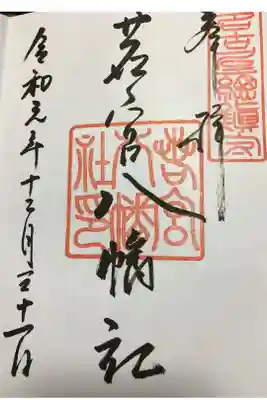 名古屋總鎮守
奉拝
若宮八幡社
若宮
八幡
社印
令和元年十二月三十一日